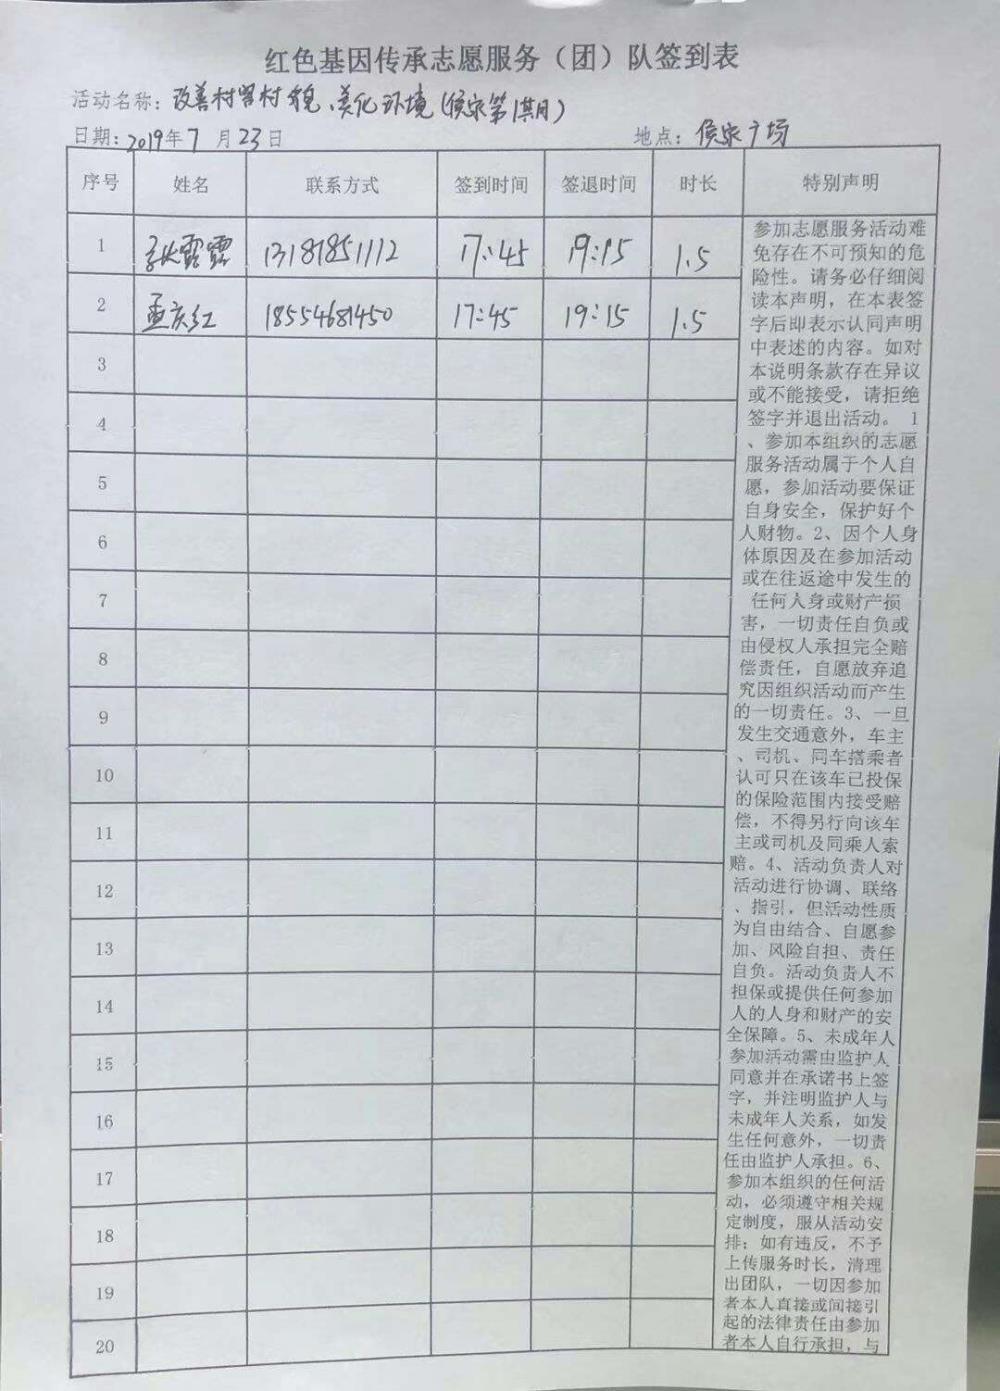 红色基因传承志愿服务（团）队签到表
活动名称：改善村容村貌、美化环境（侯家第1期）
日期：2019年7月23日 地点：侯家广场
序号 姓名 联系方式 签到时间 签退时间 时长 特别声明
1 露露 13187851112 17:45 19:15 1.5
2 孟庆红 18554681450 17:45 19:15 1.5
3
4
5
6
7
8
9
10
11
12
13
14
15
16
17
18
19
20
参加志愿服务活动难
免存在不可预知的危
险性。请务必仔细阅
读本声明，在本表签
字后即表示认同声明
中表述的内容。如对
本说明条款存在异议
或不能接受，请拒绝
签字并退出活动。 1
、参加本组织的志愿
服务活动属于个人自
愿，参加活动要保证
自身安全，保护好个
人财物。2、因个人身
体原因及在参加活动
或在往返途中发生的
任何人身或财产损
害，一切责任自负或
由侵权人承担完全赔
偿责任，自愿放弃追
究因组织活动而产生
的一切责任。3、一旦
发生交通意外，车主
、司机、同车搭乘者
认可只在该车已投保
的保险范围内接受赔
偿，不得另行向该车
主或司机及同乘人索
赔。4、活动负责人对
活动进行协调、联络
、指引，但活动性质
为自由结合、自愿参
加、风险自担、责任
自负。活动负责人不
担保或提供任何参加
人的人身和财产的安
全保障。5、未成年人
参加活动需由监护人
同意并在承诺书上签
字，并注明监护人与
未成年人关系，如发
生任何意外，一切责
任由监护人承担。6、
参加本组织的任何活
动，必须遵守相关规
定制度，服从活动安
排；如有违反，不予
上传服务时长，清理
出团队，一切因参加
者本人直接或间接引
起的法律责任由参加
者本人自行承担，与